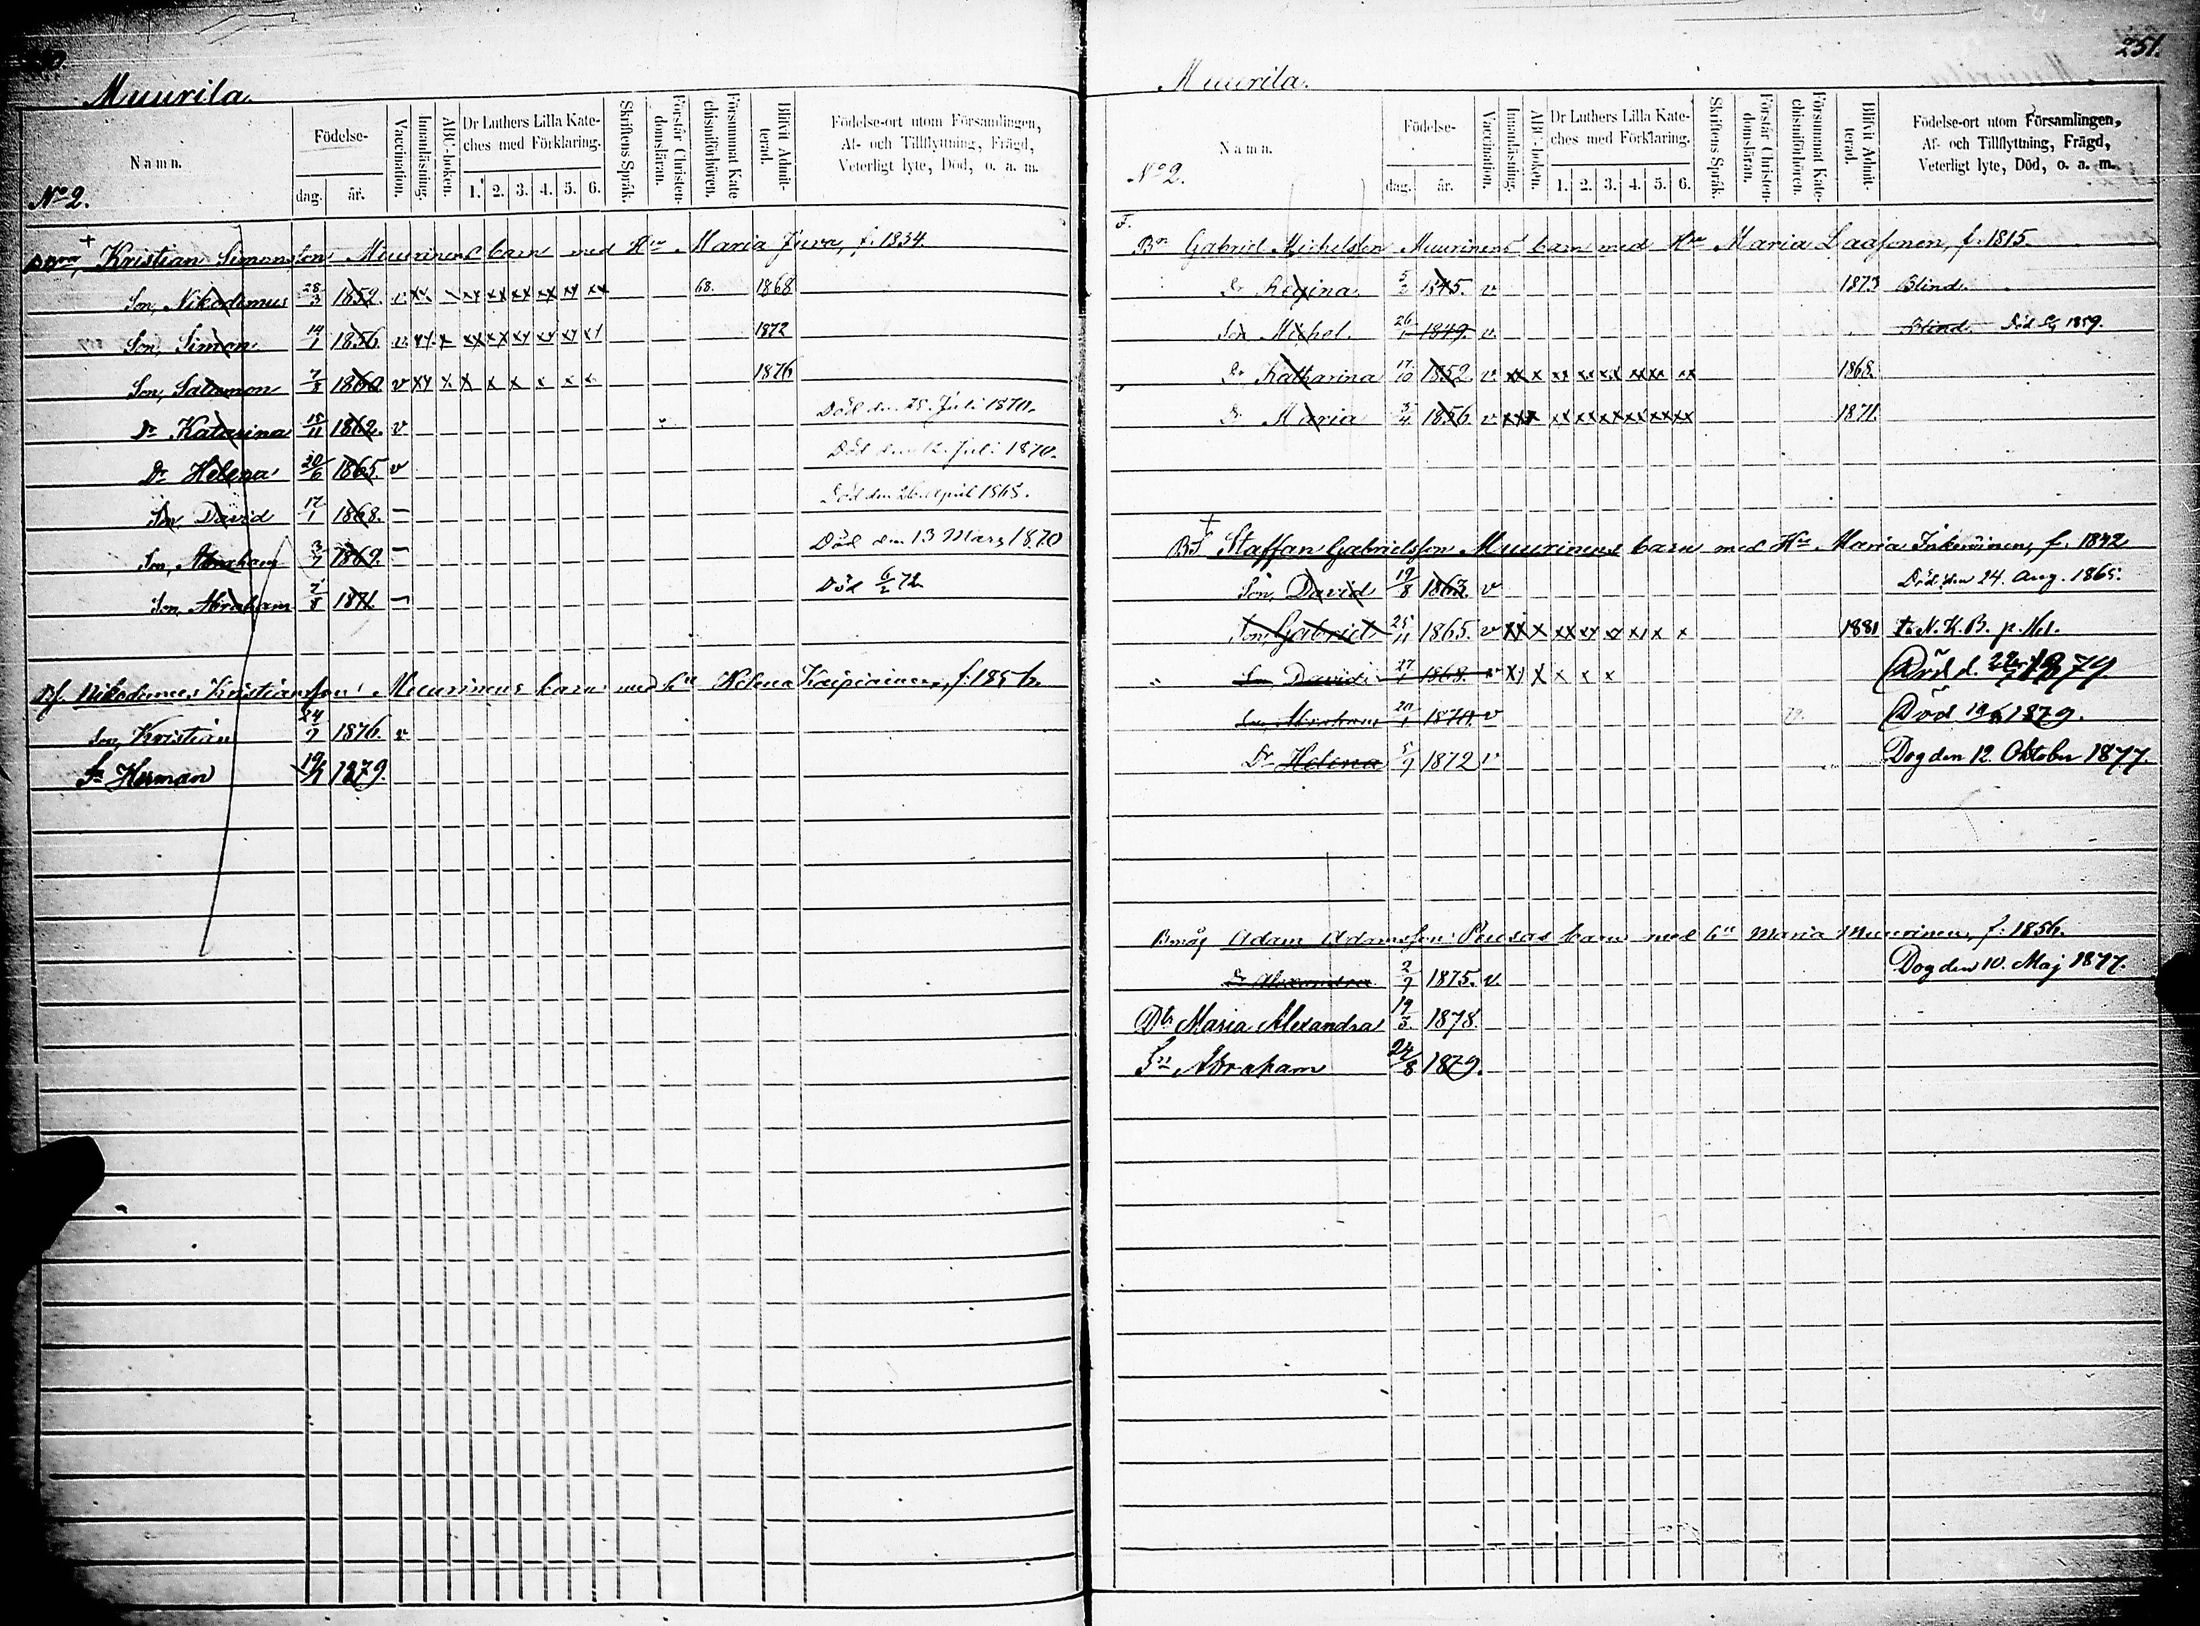 Muurila.
Namn.
Födelse-
dag.
år.
Vaccination.
Innanläsning.
ABC-boken.
Dr Luthers Lilla Kate-
ches med Förklaring.
1. 2. 3. 4. 5. 6.
Skriftens Språk.
Förstår Christen-
domsläran.
Försummat Kate
chismiförhören.
Blifvit Admit-
terad.
Födelse-ort utom Församlingen,
Af- och Tillflyttning, Frägd,
Veterligt lyte, Död, o. a. m.
No 2.
Kristian Simonsson Muurinens barn med Hu Maria Juva, f. 1834.
Son, Nikodemus 28/3 1852. v xx - xx xx xx xx xx xx 68. 1868
Son, Simon 14/1 1856 v xx x xx xx xx xx xx x1 1872
Son, Salomon 7/8 1860 v xx x x x x x x x 1876
Dr Katarina 15/11 1862. v Död den 25. Juli 1870.
Dr Helena 20/6 1865. v Död den 12. Juli 1870.
Son, David 17/1 1868. - Död den 26 april 1868.
Son, Abraham 3/7 1869. - Död den 13 Mars 1870
Son, Abraham 7/8 1871 - Död 6/2 72.
Bf. Nikodemus Kristiansson Muurinens barn med hu Helena Kaipiainen, f. 1856.
Son, Kristian 24/7 1876. v
Sn Herman 19/1 1879.
251.
Muurila.
Namn.
Födelse-
dag.
år.
Vaccination.
Innanläsning.
ABC-boken.
Dr Luthers Lilla Kate-
ches med Förklaring.
1. 2. 3. 4. 5. 6.
Skriftens Språk.
Förstår Christen-
domsläran.
Försummat Kate-
chismiförhören.
Blifvit Admit-
terad.
Födelse-ort utom Församlingen,
Af- och Tillflyttning, Frägd,
Veterligt lyte, Död, o. a. m.
No 2.
F.
Bn Gabriel Michelsson Muurinens barn med Hu Maria Laasonen, f. 1815.
Dr Regina 5/2 1845. v 1873 Blind.
Son Michel. 26/1 1849. v. Blind. Död 1859.
Dr Katharina 17/10 1852 v. xx x xx xx xx xx xx 1868.
Dr Maria 3/4 1856 v xx x xx xx xx xx xx xx 1871.
Bf Staffan Gabrielsson Muurinens barn med Hu Maria Inkeroinen, f. 1842
Son, David 19/8 1863 v Död den 24. Aug. 1865.
Son, Gabriel 25/11 1865. v xx x xx xx xx x1 x x 1881 N. K. B. p.
Son David 27/1 1868. v x1 x x x x Död d. 1879.
Son, Abraham 20/1 1870. v 79. Död 1879.
Dr Helena 5/9 1872 v Dog den 12. Oktober 1877.
Bmåg Adam Adamsson Peusas barn med hu Maria Muurinen, f. 1856.
Dr Alexandra 2/9 1875. v. Dog den 10. Maj 1877.
Dtr Maria Alexandra 19/3 1878.
Sn Abraham 24/8 1879.